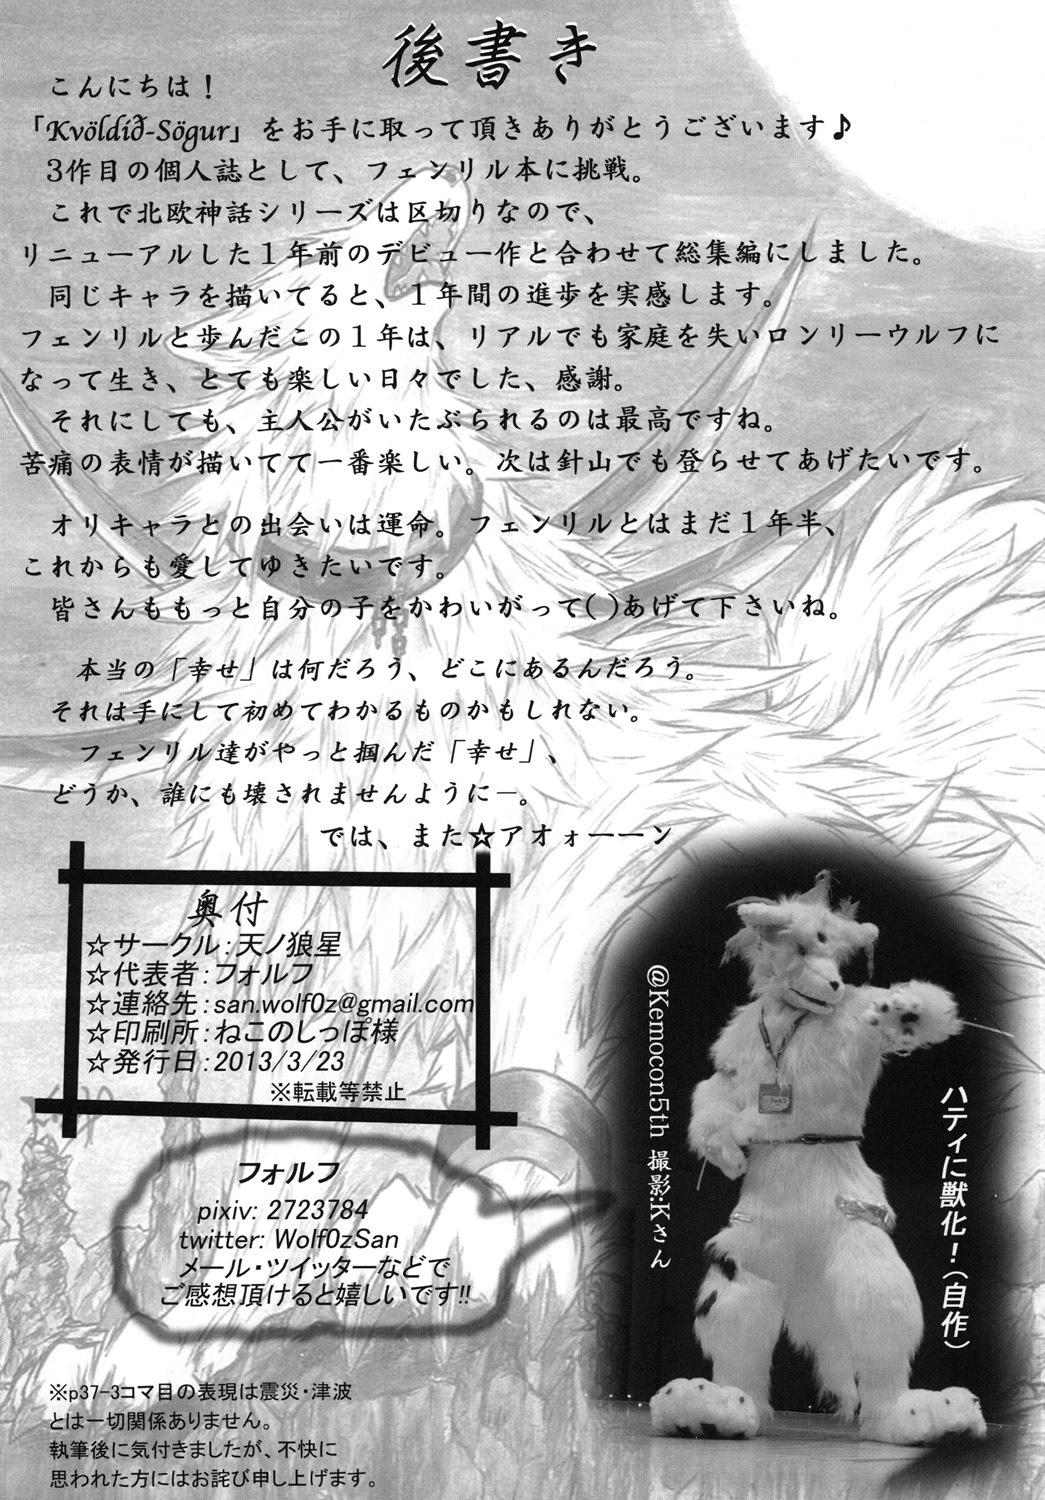 後書き
こんにちは！
「Kvöldið-Sögur」をお手に取って頂きありがとうございます♪
3作目の個人誌として、フェンリル本に挑戦。
これで北欧神話シリーズは区切りなので、
リニューアルした１年前のデビュー作と合わせて総集編にしました。
同じキャラを描いてると、１年間の進歩を実感します。
フェンリルと歩んだこの１年は、リアルでも家庭を失いロンリーウルフに
なって生き、とても楽しい日々でした、感謝。
それにしても、主人公がいたぶられるのは最高ですね。
苦痛の表情が描いてて一番楽しい。次は針山でも登らせてあげたいです。
オリキャラとの出会いは運命。フェンリルとはまだ１年半、
これからも愛してゆきたいです。
皆さんももっと自分の子をかわいがって( )あげて下さいね。
本当の「幸せ」は何だろう、どこにあるんだろう。
それは手にして初めてわかるものかもしれない。
フェンリル達がやっと掴んだ「幸せ」、
どうか、誰にも壊されませんように―。
では、また☆アオォーーン
奥付
☆サークル：天ノ狼星
☆代表者：フォルフ
☆連絡先：san.wolf0z@gmail.com
☆印刷所：ねこのしっぽ様
☆発行日：2013/3/23
※転載等禁止
フォルフ
pixiv: 2723784
twitter: Wolf0zSan
メール・ツイッターなどで
ご感想頂けると嬉しいです!!
@Kemocon5th 撮影:Kさん
ハティに獣化！（自作）
フォルフ
※p37-3コマ目の表現は震災・津波
とは一切関係ありません。
執筆後に気付きましたが、不快に
思われた方にはお詫び申し上げます。